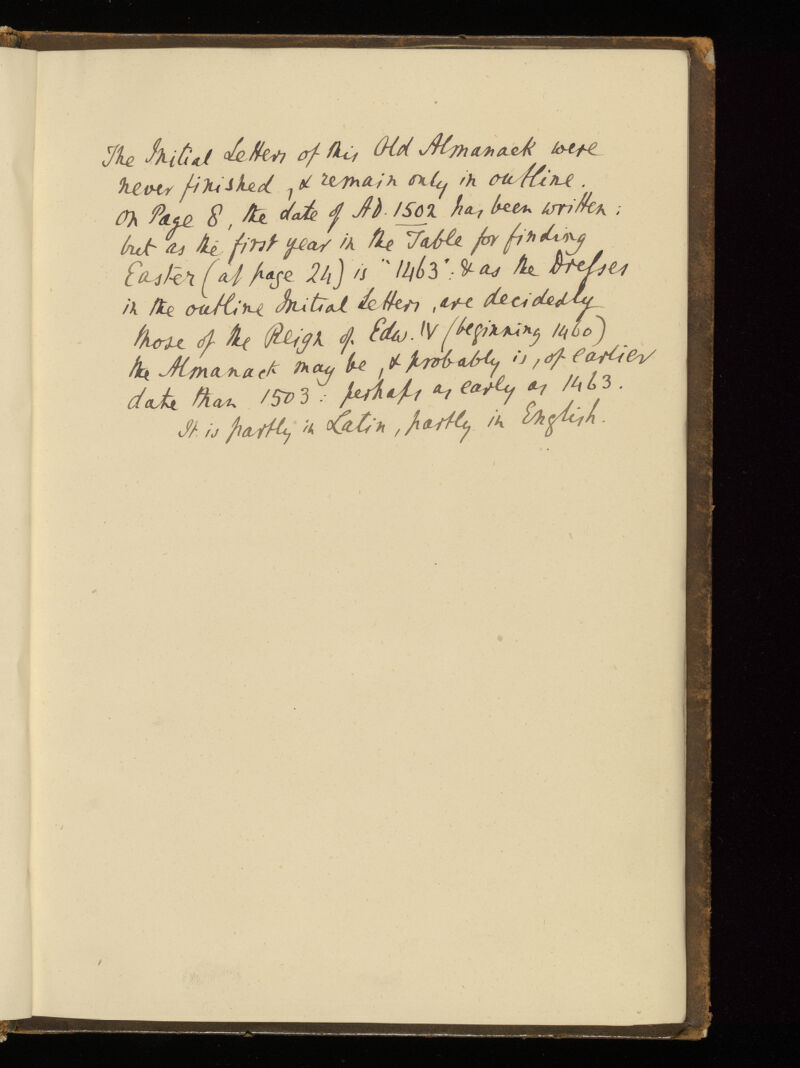 The Initial Letters of this Old Almanack were
never finished, & remain only in outline.
On Page 8, the date of AD. 1502 has been written:
but as the first year in the Table for finding
Easter (at page 24) is "1463": & as the Dreſses
in the outline Initial Letters, are decidedly
those of the Reign of Edw. IV (beginning 1460)
the Almanack may be, & probably is, of earlier
date than 1503: perhaps as early as 1463.
It is partly in Latin, partly in English.